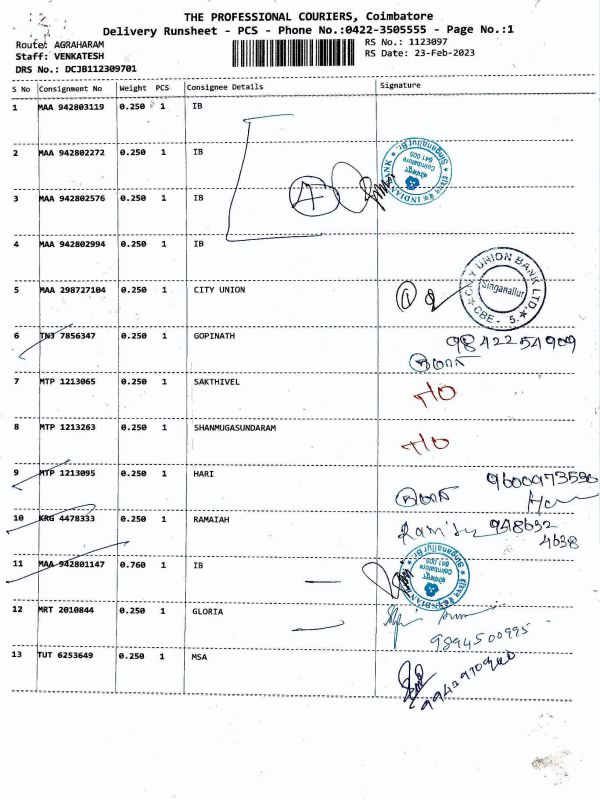 THE PROFESSIONAL COURIERS, Coimbatore
Delivery Runsheet - PCS - Phone No.:0422-3505555 - Page No.:1
Route: AGRAHARAM
Staff: VENKATESH
DRS No.: DCJB112309701
RS No.: 1123097
RS Date: 23-Feb-2023
S No Consignment No Weight PCS Consignee Details Signature
1 MAA 942803119 0.250 1 IB
2 MAA 942802272 0.250 1 IB
3 MAA 942802576 0.250 1 IB
4
INDIAN BANK
Singanallur Br.
Coimbatore
641 005
4 MAA 942802994 0.250 1 IB
5 MAA 298727104 0.250 1 CITY UNION
1
CITY UNION BANK LTD.
Singanallur
CBE - 5.
6 TNJ 7856347 0.250 1 GOPINATH
9842254909
7 MTP 1213065 0.250 1 SAKTHIVEL
8 MTP 1213263 0.250 1 SHANMUGASUNDARAM
9 MTP 1213095 0.250 1 HARI
10 KRG 4478333 0.250 1 RAMAIAH
948632
4638
11 MAA 942801147 0.760 1 IB
INDIAN BANK
Singanallur Br.
Coimbatore
641 005
12 MRT 2010844 0.250 1 GLORIA
9894500995
13 TUT 6253649 0.250 1 MSA